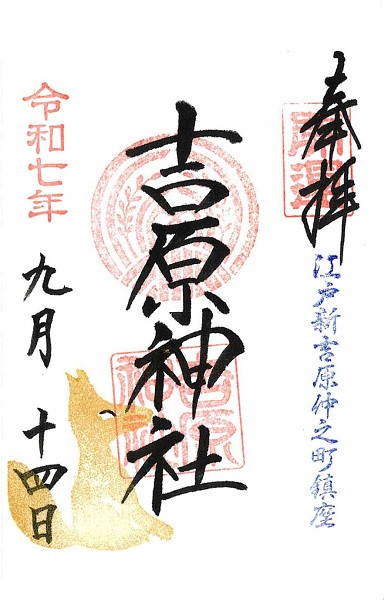 奉拝
開運
江戸新吉原仲之町鎮座
吉原神社
令和七年
九月
十四日